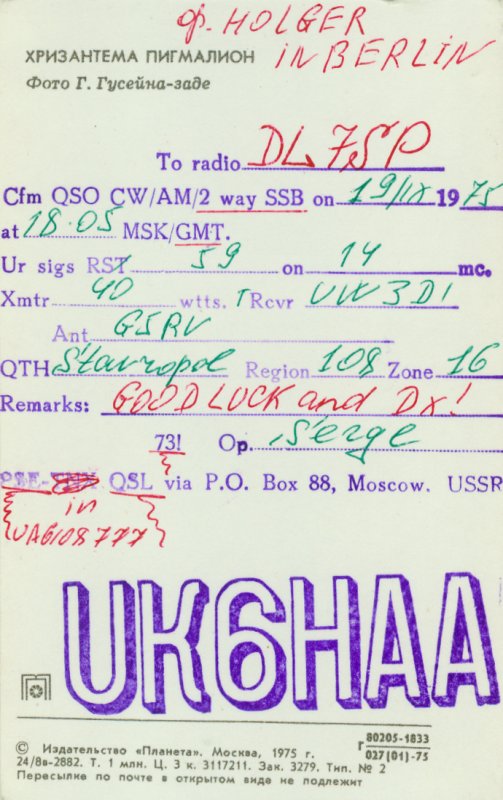 ф. HOLGER
in BERLIN
ХРИЗАНТЕМА ПИГМАЛИОН
Фото Г. Гусейна-заде
To radio DL7SP
Cfm QSO CW/AM/2 way SSB on 19/IX 1975
at 18.05 MSK/GMT.
Ur sigs RST 59 on 14 mc.
Xmtr 40 wtts. TRcvr UW3DI
Ant G5RV
QTH Stavropol Region 108 Zone 16
Remarks: GOOD LUCK and DX!
73! Op. Serge
PSE-TNX QSL via P.O. Box 88, Moscow. USSR
in
UA6108777
UK6HAA
© Издательство «Планета». Москва, 1975 г.
24/8в-2882. Т. 1 млн. Ц. 3 к. 3117211. Зак. 3279. Тип. № 2
Пересылке по почте в открытом виде не подлежит
Г 80205-1833
027(01)-75